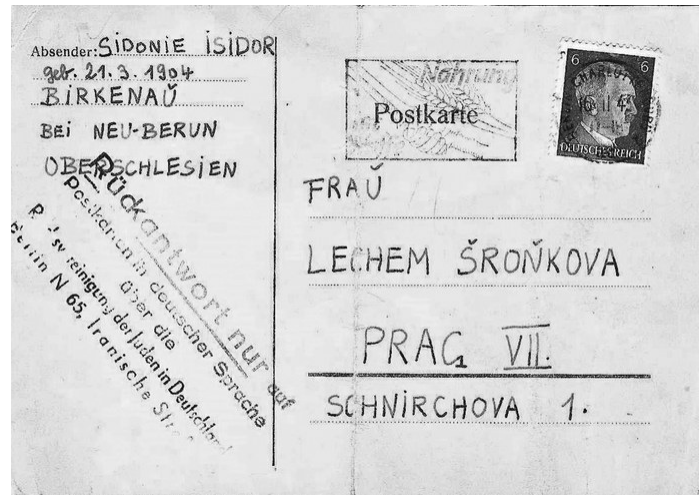 Absender: SIDONIE ISIDOR
geb. 21. 3. 1904
BIRKENAŬ
BEI NEU-BERUN
OBERSCHLESIEN
Rückantwort nur auf
Postkarten in deutscher Sprache
über die
Reichsvereinigung der Juden in Deutschland
Berlin N 65, Iranische
Nahrung
Postkarte
6 6
CHARLOTT
DEUTSCHES REICH
FRAŬ
LECHEM ŠROŇKOVA
PRAG VII.
SCHNIRCHOVA 1.